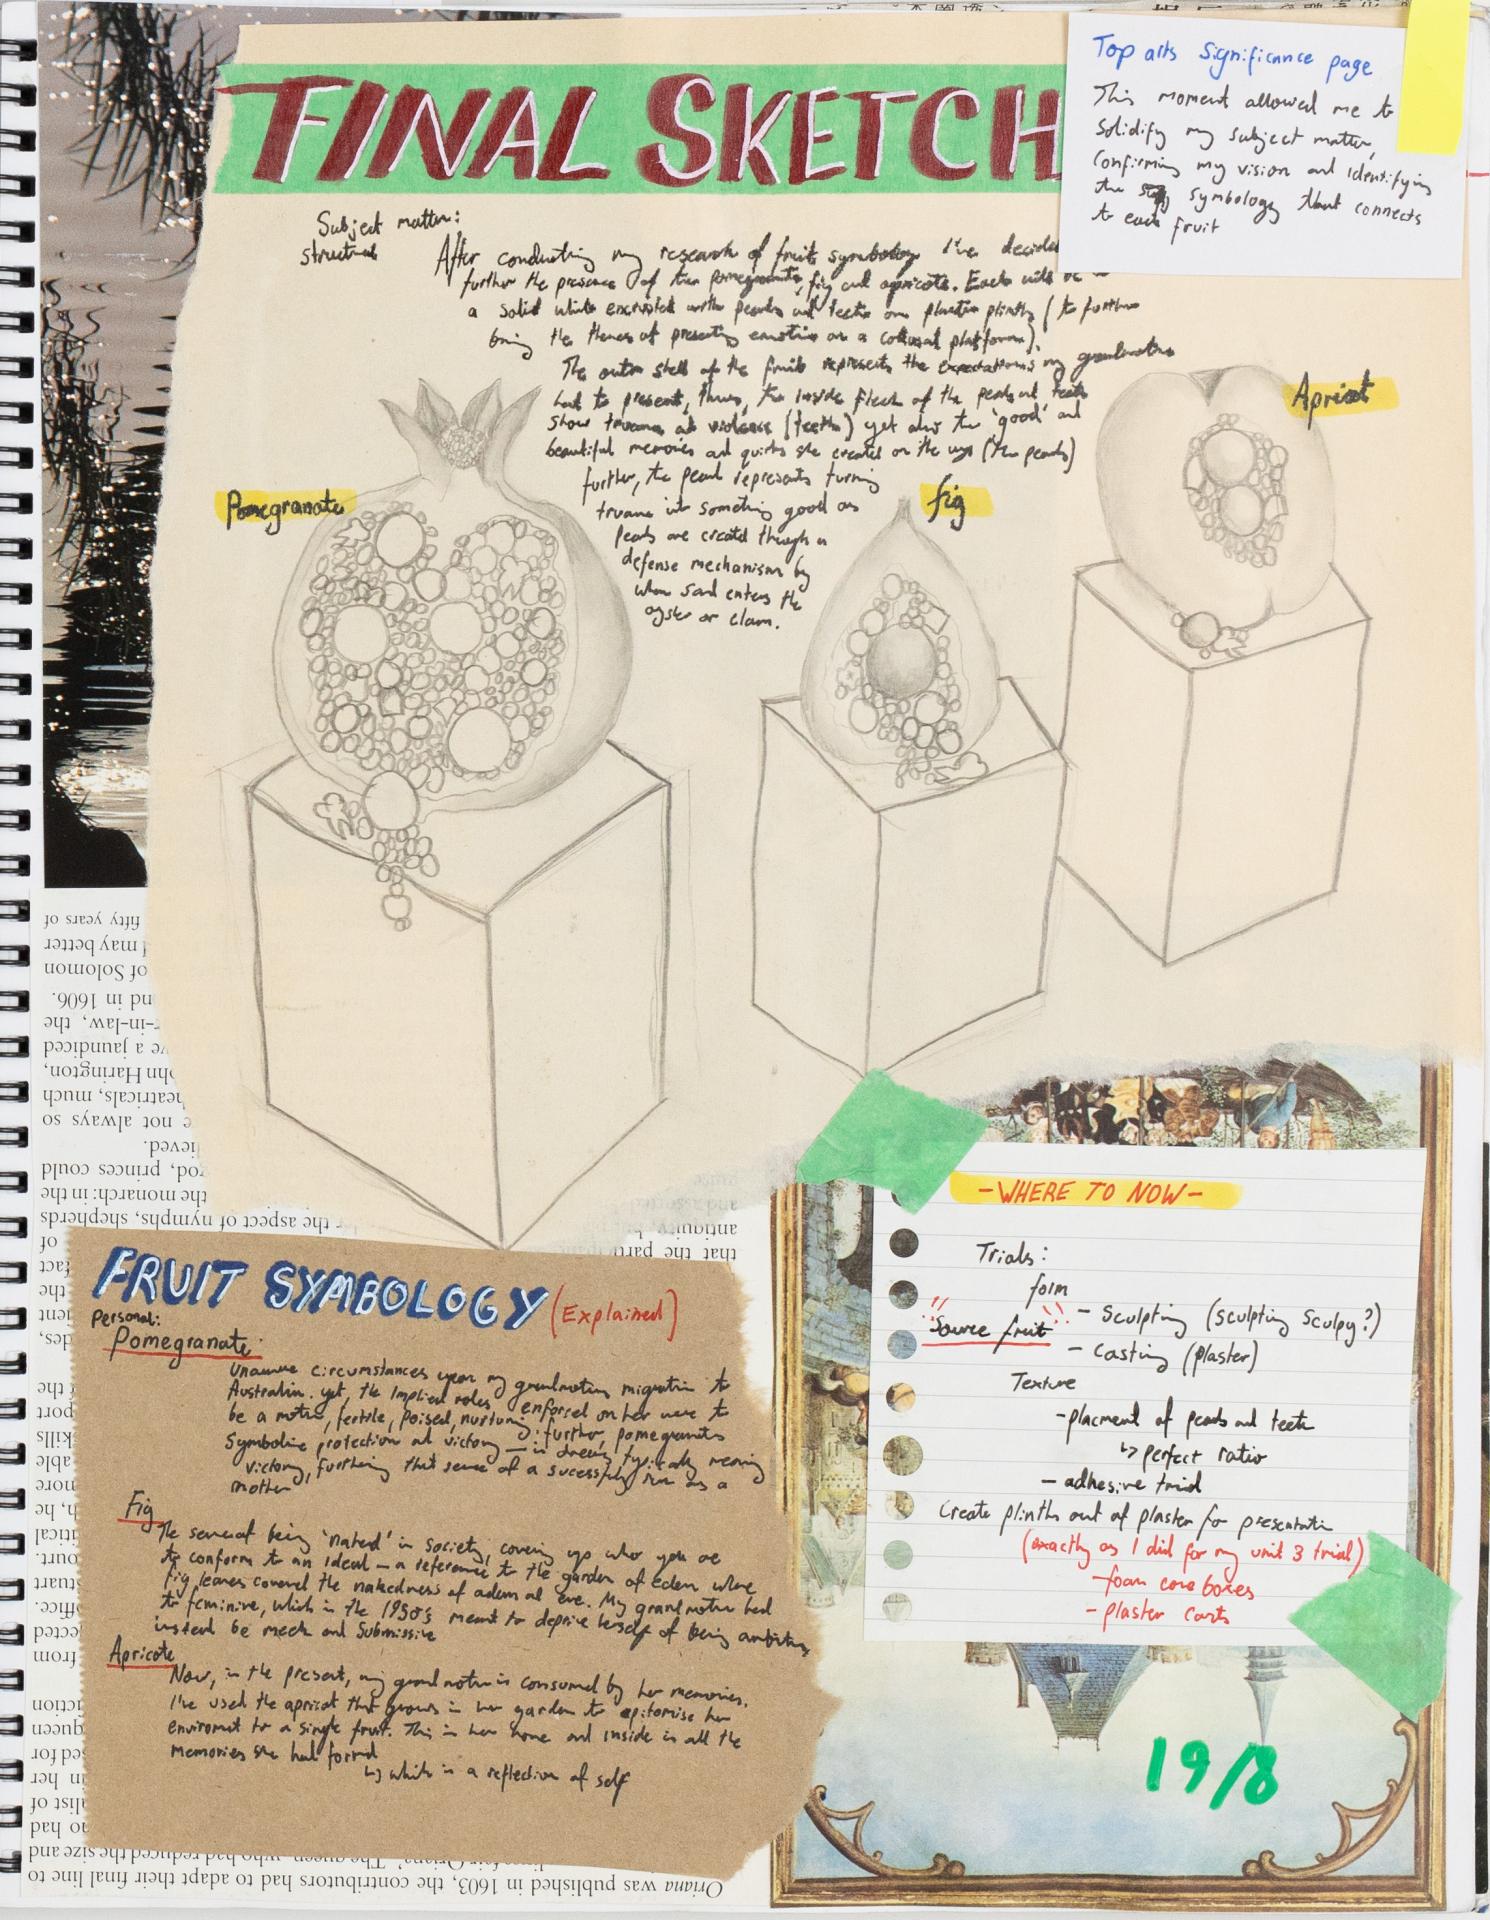 FINAL SKETCH
Top arts Significance page
This moment allowed me to
Solidify my subject matter,
Confirming my vision and identifying
the symbology that connects
to each fruit
Subject matter:
structural
After conducting my research of fruit symbology I've decided
further the presence of the pomegranate, fig and apricots. Each will be
a solid white encrusted with pearls and teeth on plaster plinths (to further
bring the themes of presenting emotion on a colossal platform).
The outer shell of the fruits represents the expectations my grandmother
had to present, thus, the inside flesh of the pearls and teeth
show trauma and violence (teeth) yet also the 'good' and
beautiful memories and quirks she created on the way (the pearls)
further, the pearl represents turning
trauma into something good as
pearls are created through a
defense mechanism by
when sand enters the
oyster or clam.
Pomegranate
fig
Apricot
fifty years of
may better
of Solomon
and in 1606.
r-in-law, the
ve a jaundiced
ohn Harington,
eatricals, much
e not always so
ieved.
god, princes could
the monarch: in the
the aspect of nymphs, shepherds
antiquity
that the
FRUIT SYMBOLOGY (Explained)
Personal:
Pomegranate
Unaware circumstances upon my grandmothers migration to
Australia. yet, the implied roles enforced on her were to
be a mother, fertile, poised, nurturing. further pomegranates
Symbolise protection and victory — in dreams typically meaning
victory, furthering that sense of a sucessful run as a
mother
Fig
The sense of being 'naked' in society, covering up who you are
to conform to an ideal — a reference to the garden of Eden where
fig leaves covered the nakedness of adam and eve. My grandmother had
to feminine, which in the 1950's meant to deprive herself of being ambitious,
instead be meek and Submissive
Apricots
Now, in the present, my grandmother is consumed by her memories.
I've used the apricot that grows in her garden to epitomise her
enviroment to a single fruit. This is her home and inside is all the
memories she had formed
↳ which is a reflection of self
- WHERE TO NOW -
Trials:
form
"Source fruit" - Sculpting (sculpting Sculpy?)
- Casting (plaster)
Texture
- placment of pearls and teeth
↳ perfect ratio
- adhesive trial
Create plinths out of plaster for presentation
(exactly as I did for my unit 3 trial)
- foam core boxes
- plaster casts
19/8
Oriana was published in 1603, the contributors had to adapt their final line to